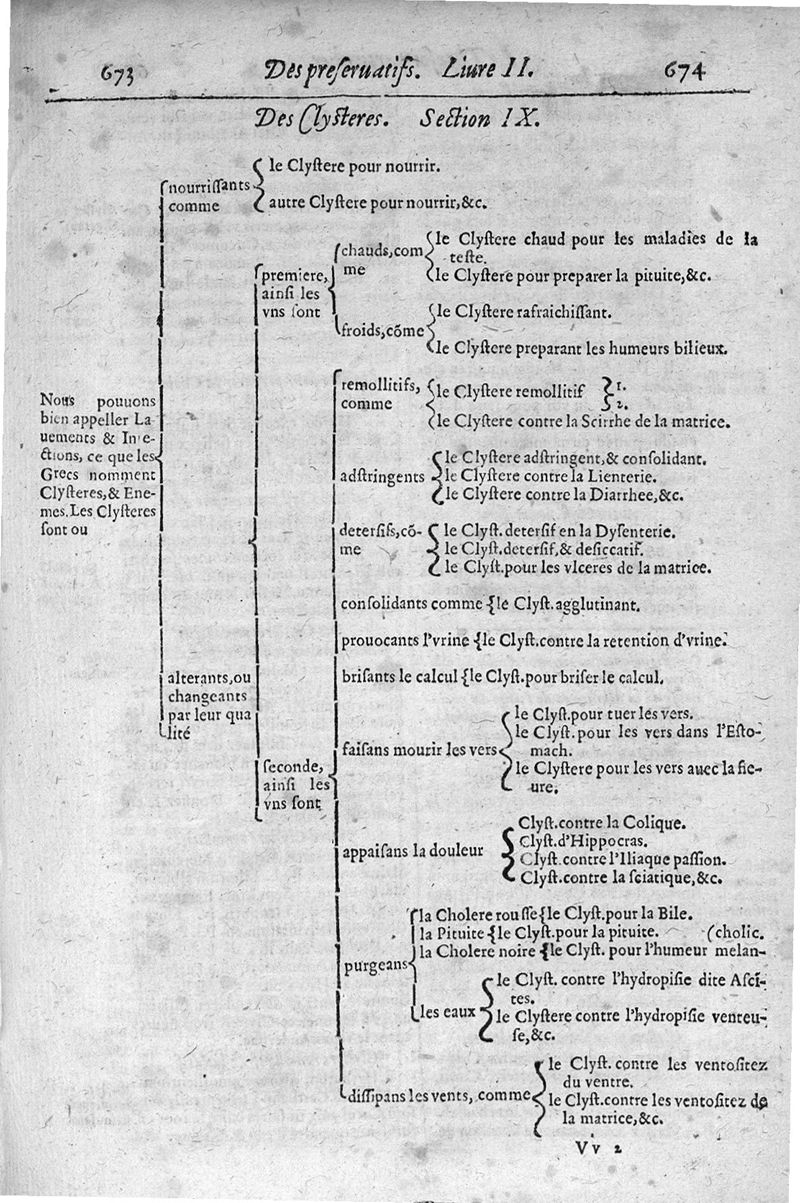 673 Des preseruatifs. Liure II. 674
Des Clysteres. Section IX.
Nous pouuons
bien appeller La-
uements & Inie-
ctions, ce que les
Grecs nomment
Clysteres, & Ene-
mes. Les Clysteres
sont ou
nourrissants
comme
le Clystere pour nourrir.
autre Clystere pour nourrir, &c.
alterants, ou
changeants
par leur qua
lité
premiere,
ainsi les
vns sont
chauds, com
me
le Clystere chaud pour les maladies de la
teste.
le Clystere pour preparer la pituite, &c.
froids, cõme
le Clystere rafraichissant.
le Clystere preparant les humeurs bilieux.
seconde,
ainsi les
vns sont
remollitifs,
comme
le Clystere remollitif 1.
2.
le Clystere contre la Scirrhe de la matrice.
adstringents
le Clystere adstringent, & consolidant.
le Clystere contre la Lienterie.
le Clystere contre la Diarrhee, &c.
detersifs, cõ-
me
le Clyst. detersif en la Dysenterie.
le Clyst. detersif, & desiccatif.
le Clyst. pour les vlceres de la matrice.
consolidants comme {le Clyst. agglutinant.
prouocants l'vrine {le Clyst. contre la retention d'vrine.
brisants le calcul {le Clyst. pour briser le calcul.
faisans mourir les vers
le Clyst. pour tuer les vers.
le Clyst. pour les vers dans l'Esto-
mach.
le Clystere pour les vers auec la fie-
ure.
appaisans la douleur
Clyst. contre la Colique.
Clyst. d'Hippocras.
Clyst. contre l'Iliaque passion.
Clyst. contre la sciatique, &c.
purgeans
la Cholere rousse {le Clyst. pour la Bile.
la Pituite {le Clyst. pour la pituite. (cholic.
la Cholere noire {le Clyst. pour l'humeur melan-
les eaux
le Clyst. contre l'hydropisie dite Asci-
tes.
le Clystere contre l'hydropisie venteu-
se, &c.
dissipans les vents, comme
le Clyst. contre les ventositez
du ventre.
le Clyst. contre les ventositez de
la matrice, &c.
Vv 2